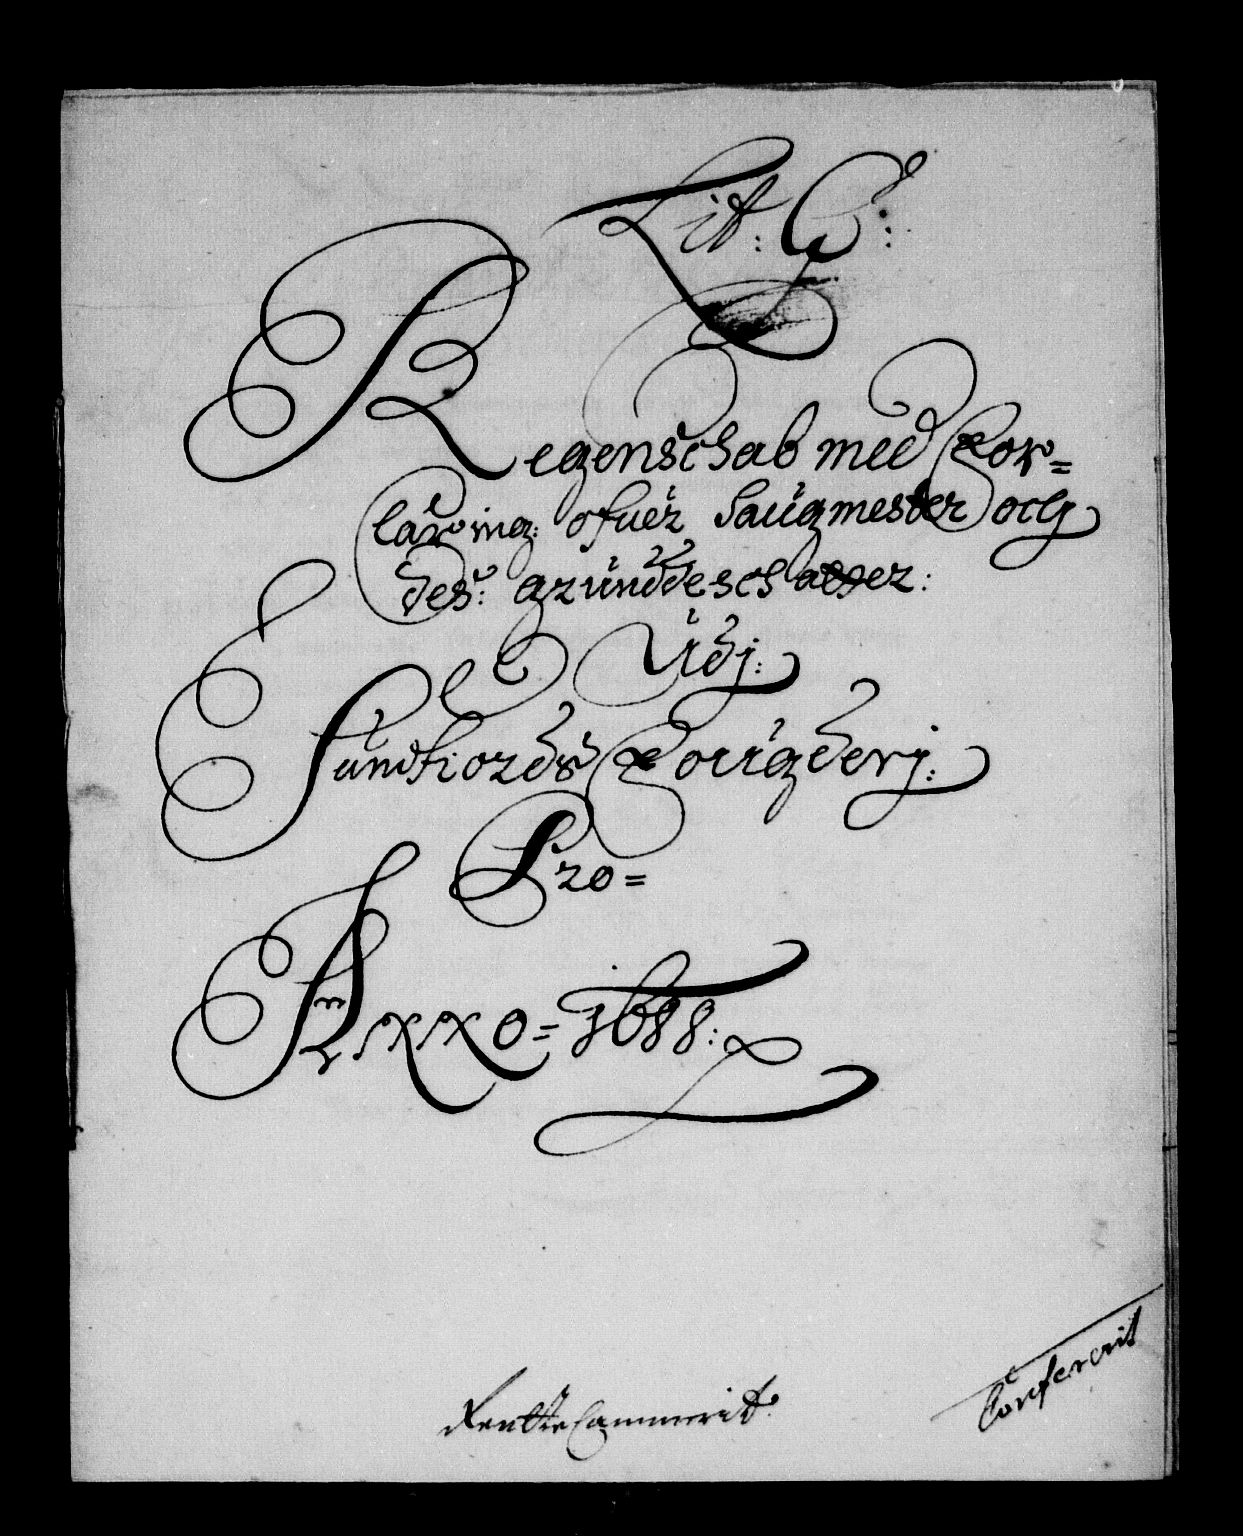 Lit. C:
Regenschab med For=
laring: ofuer Saugmester och
des: grundeschatter:
Udj:
Sundfiords Fougderj:
Pro=
Anno=1688:
RentteCammerit:
Confererit